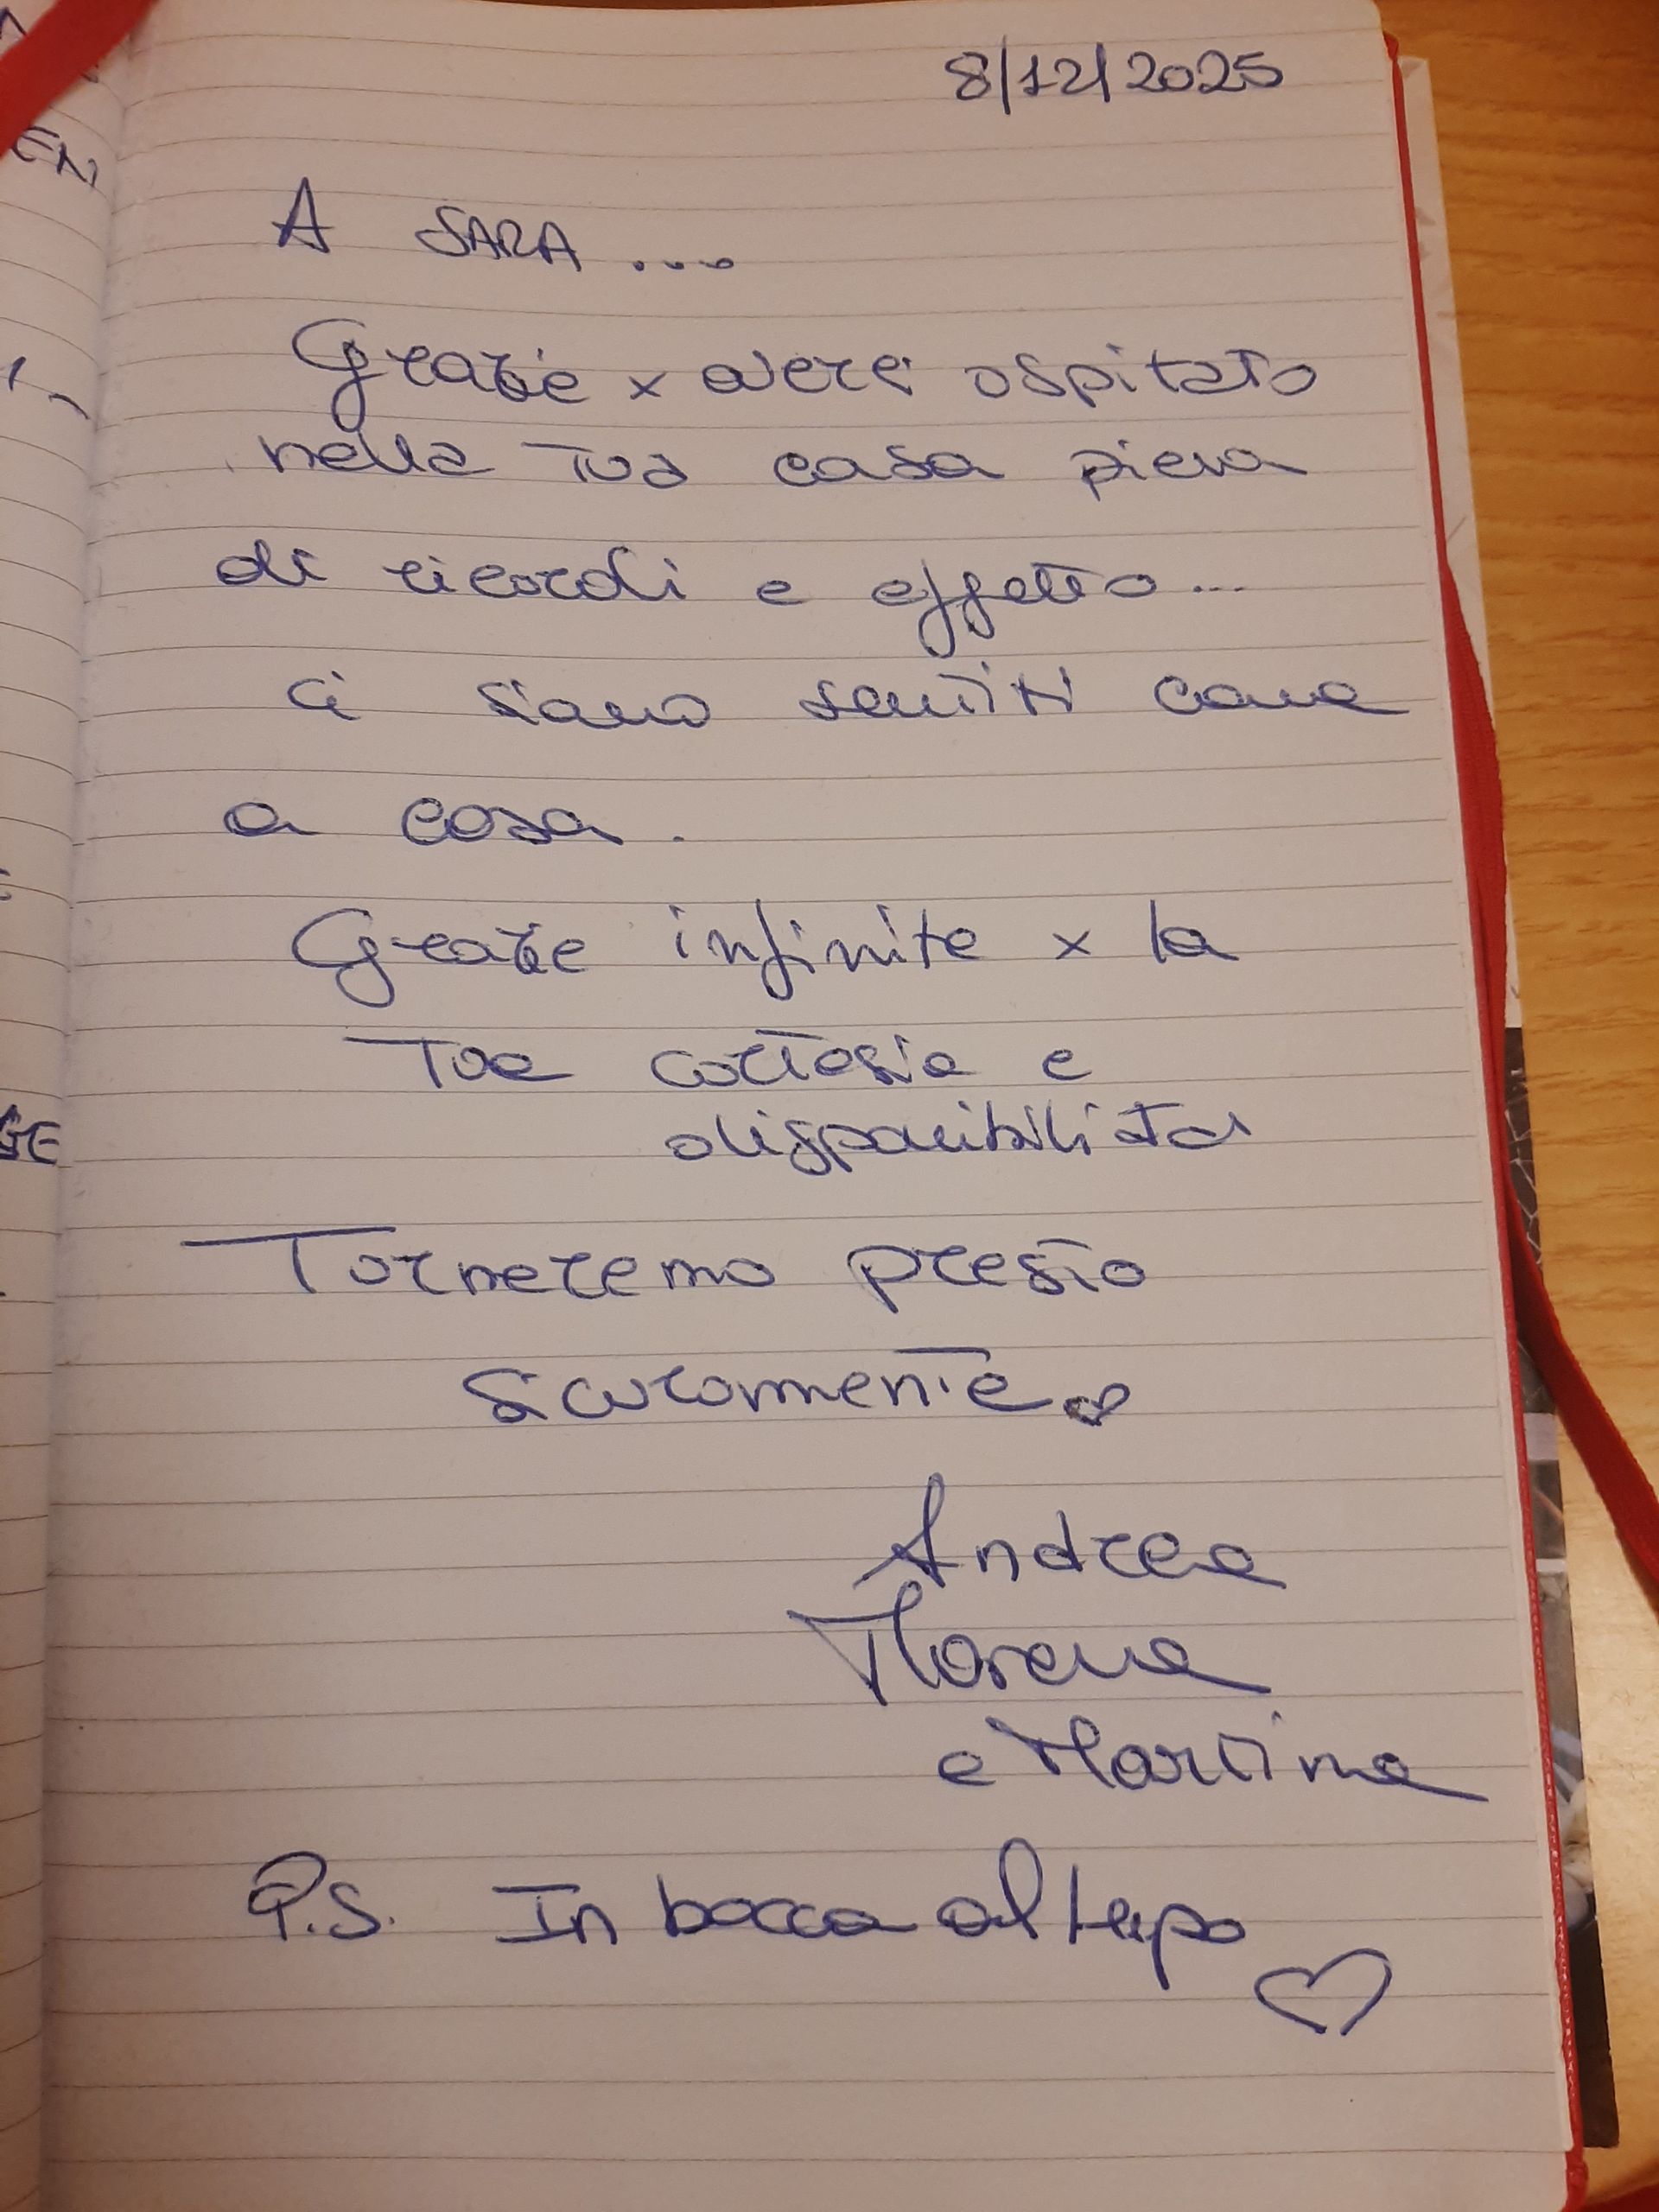 8/12/2025
A SARA ...
Grazie x averci ospitato
nella tua casa piena
di ricordi e affetto...
ci siamo sentiti come
a casa.
Grazie infinite x la
tua cortesia e
disponibilità
Torneremo presto
sicuramente
Andrea
Morena
e Martina
P.S. In bocca al lupo
EN
GE